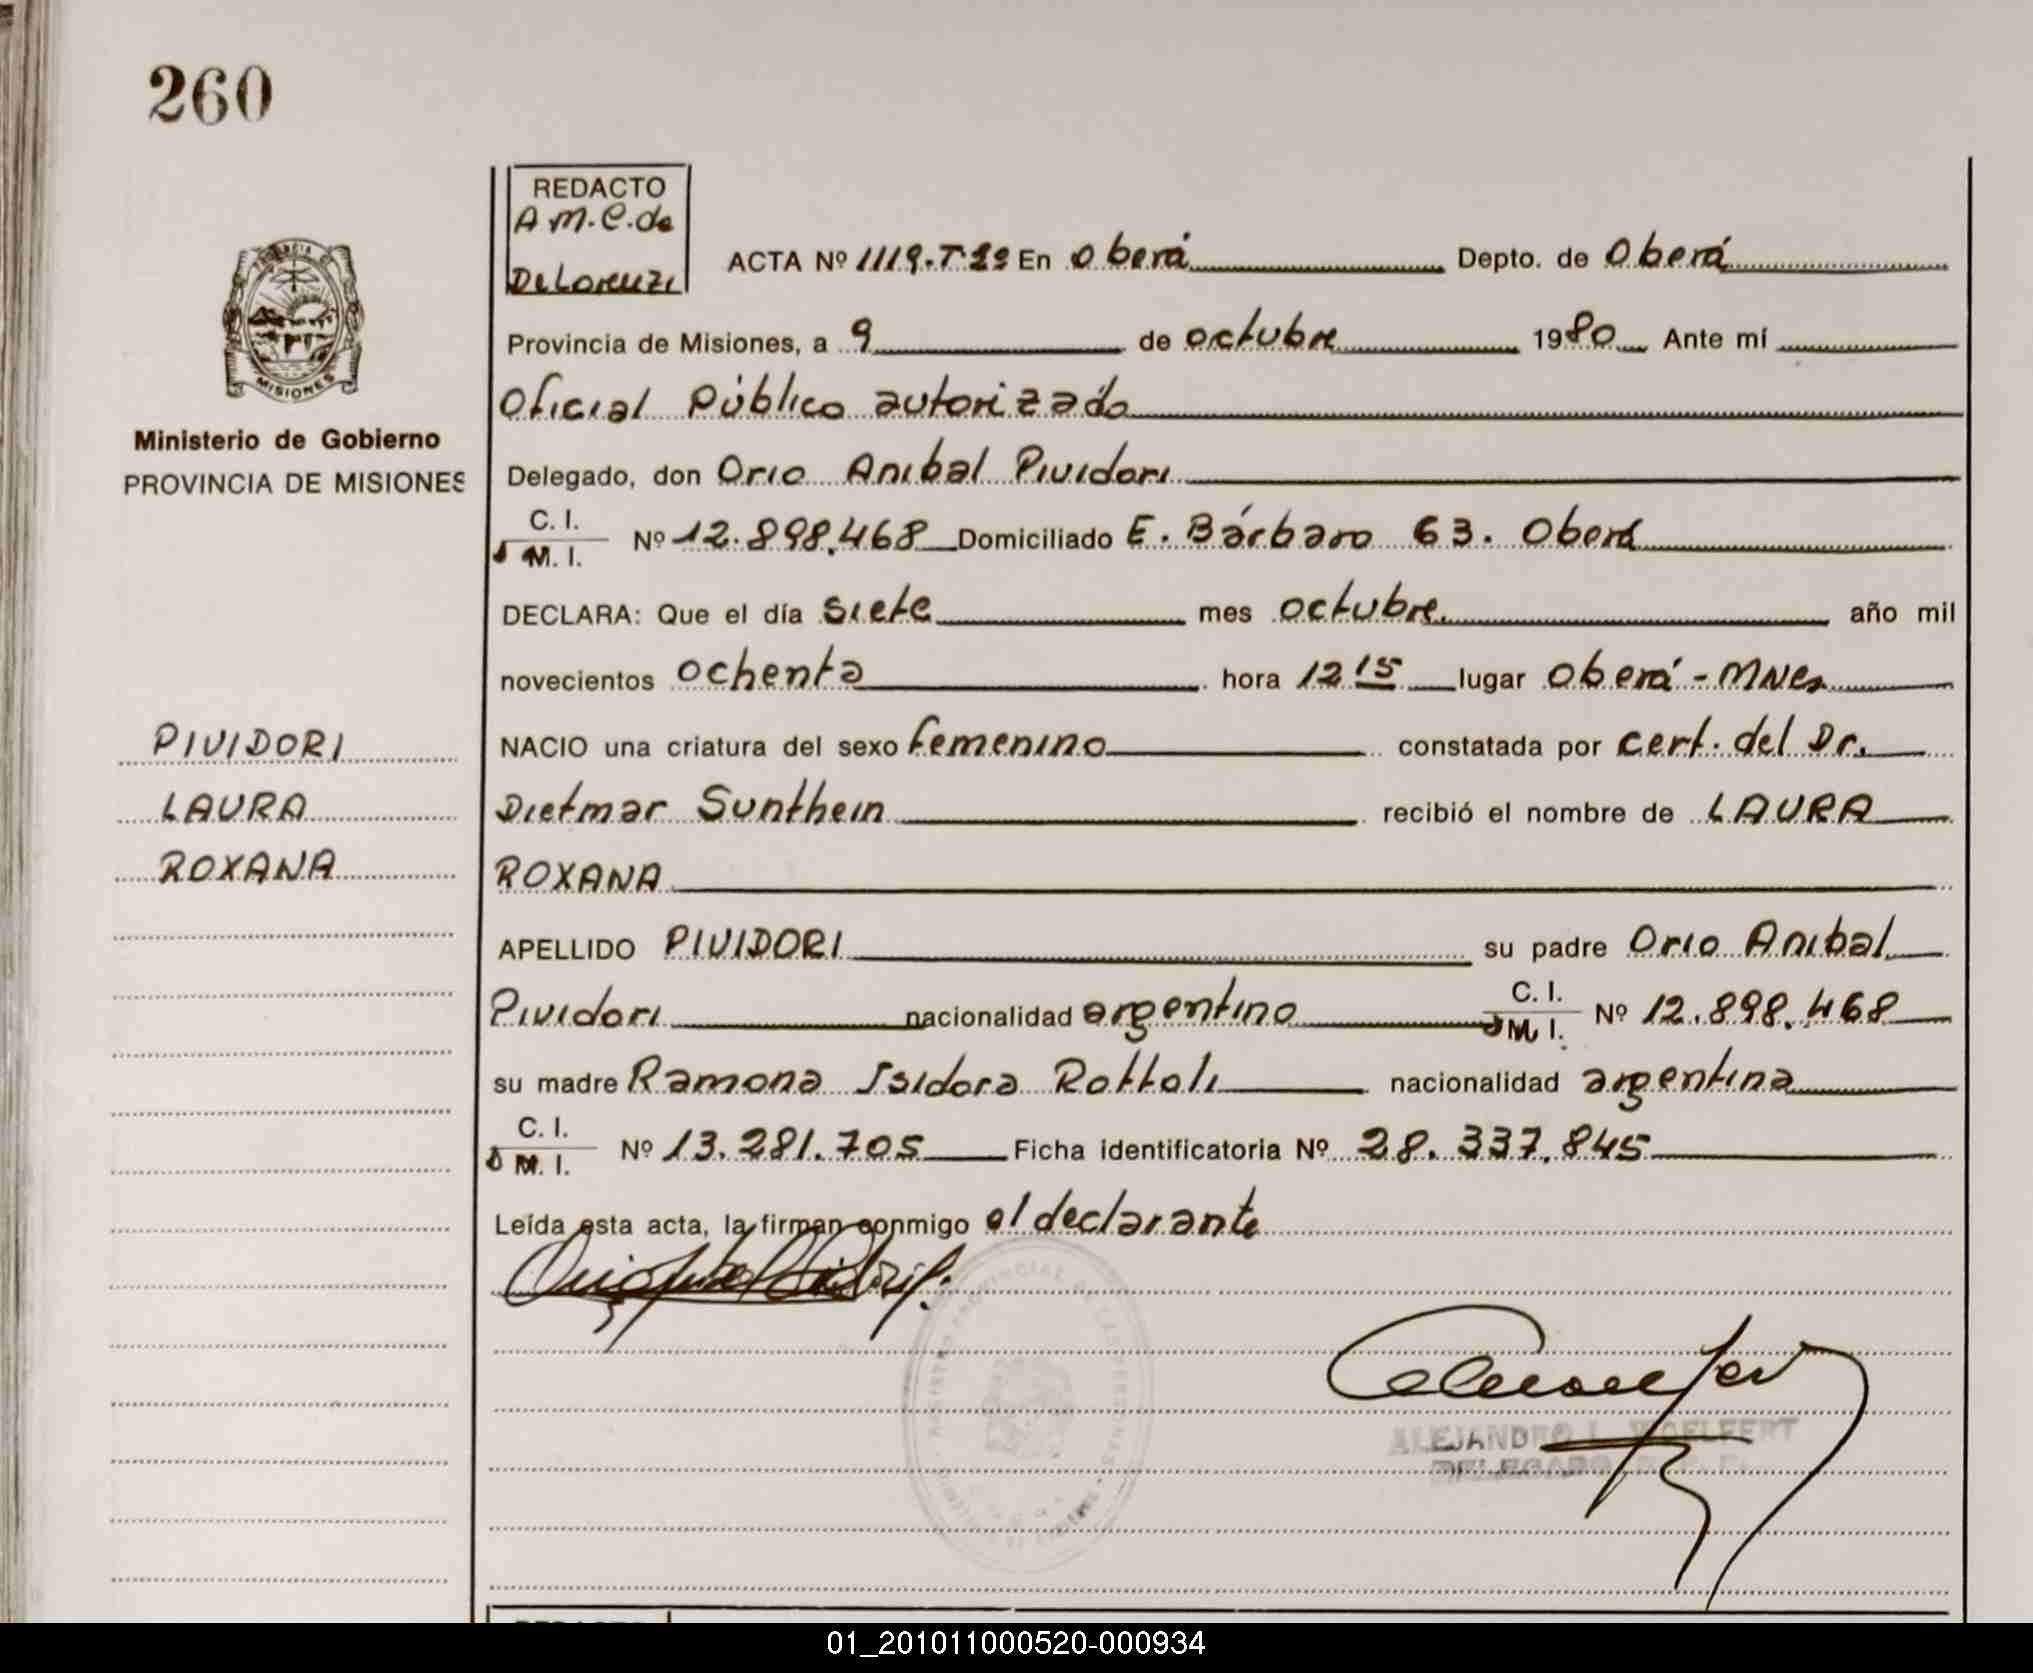 260
REDACTO
A M.C. de
De Lorenzi
ACTA Nº 1119.T2º En Oberá Depto. de Oberá
Provincia de Misiones, a 9 de octubre 1980 Ante mí
Oficial Público autorizado
PROVINCIA
MISIONES
Ministerio de Gobierno
PROVINCIA DE MISIONES
Delegado, don Orio Anibal Pividori
C. I.
M. I. Nº 12.898.468 Domiciliado E. Bárbaro 63. Oberá
DECLARA: Que el día siete mes octubre. año mil
novecientos ochenta hora 12 15 lugar Oberá - MNes
PIVIDORI
NACIO una criatura del sexo femenino constatada por cert. del Dr.
LAURA
Dietmar Sunthein recibió el nombre de LAURA
ROXANA
ROXANA
APELLIDO PIVIDORI su padre Orio Anibal
Pividori nacionalidad argentino C. I.
M. I. Nº 12.898.468
su madre Ramona Isidora Rottoli nacionalidad argentina
C. I.
M. I. Nº 13.281.705 Ficha identificatoria Nº 28.337.845
Leída esta acta, la firman conmigo el declarante
REGISTRO PROVINCIAL DE LAS PERSONAS
ALEJANDRO L. WOELFERT
DELEGADO R. P. P.
01_201011000520-000934